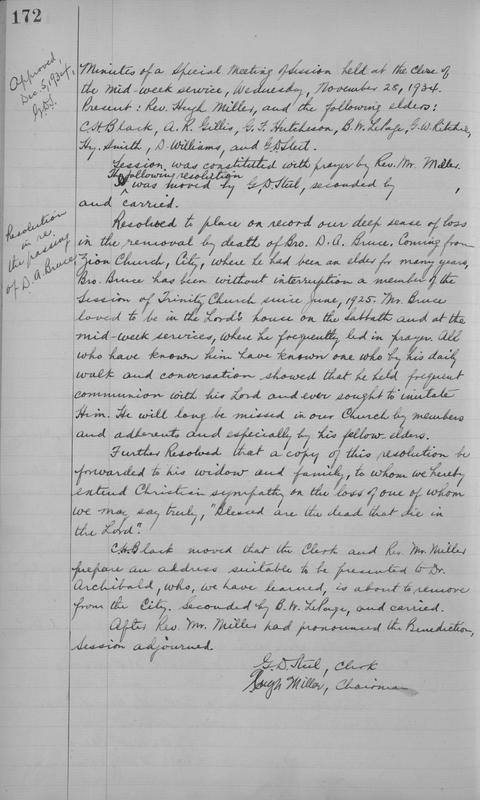 172
Approved,
Dec. 5, 1934,
G.D.S.
Minutes of a Special Meeting of Session held at the close of
the mid-week service, Wednesday, November 28, 1934.
Present: Rev. Hugh Miller, and the following elders:
C.H. Black, A.R. Gillis, G.F. Hutcheson, B.W. LePage, G.W. Ritchie,
Hy. Smith, D. Williams, and G.D. Steel.
Session was constituted with prayer by Rev. Mr. Miller.
The following resolution
was moved by G.D. Steel, seconded by ,
and carried.
Resolution
in re.
the passing
of D.A. Bruce
Resolved to place on record our deep sense of loss
in the removal by death of Bro. D.A. Bruce. Coming from
Zion Church, City, where he had been an elder for many years,
Bro. Bruce has been without interruption a member of the
Session of Trinity Church since June, 1925. Mr. Bruce
loved to be in the Lord's house on the Sabbath and at the
mid-week services, where he frequently led in prayer. All
who have known him have known one who by his daily
walk and conversation showed that he held frequent
communion with his Lord and ever sought to imitate
Him. He will long be missed in our Church by members
and adherents and especially by his fellow-elders.
Further Resolved that a copy of this resolution be
forwarded to his widow and family, to whom we hereby
extend Christian sympathy on the loss of one of whom
we may say truly, "Blessed are the dead that die in
the Lord".
C.H. Black moved that the Clerk and Rev. Mr. Miller
prepare an address suitable to be presented to Dr.
Archibald, who, we have learned, is about to remove
from the City. Seconded by B.W. LePage, and carried.
After Rev. Mr. Miller had pronounced the Benediction,
Session adjourned.
G.D. Steel, Clerk
Hugh Miller, Chairman